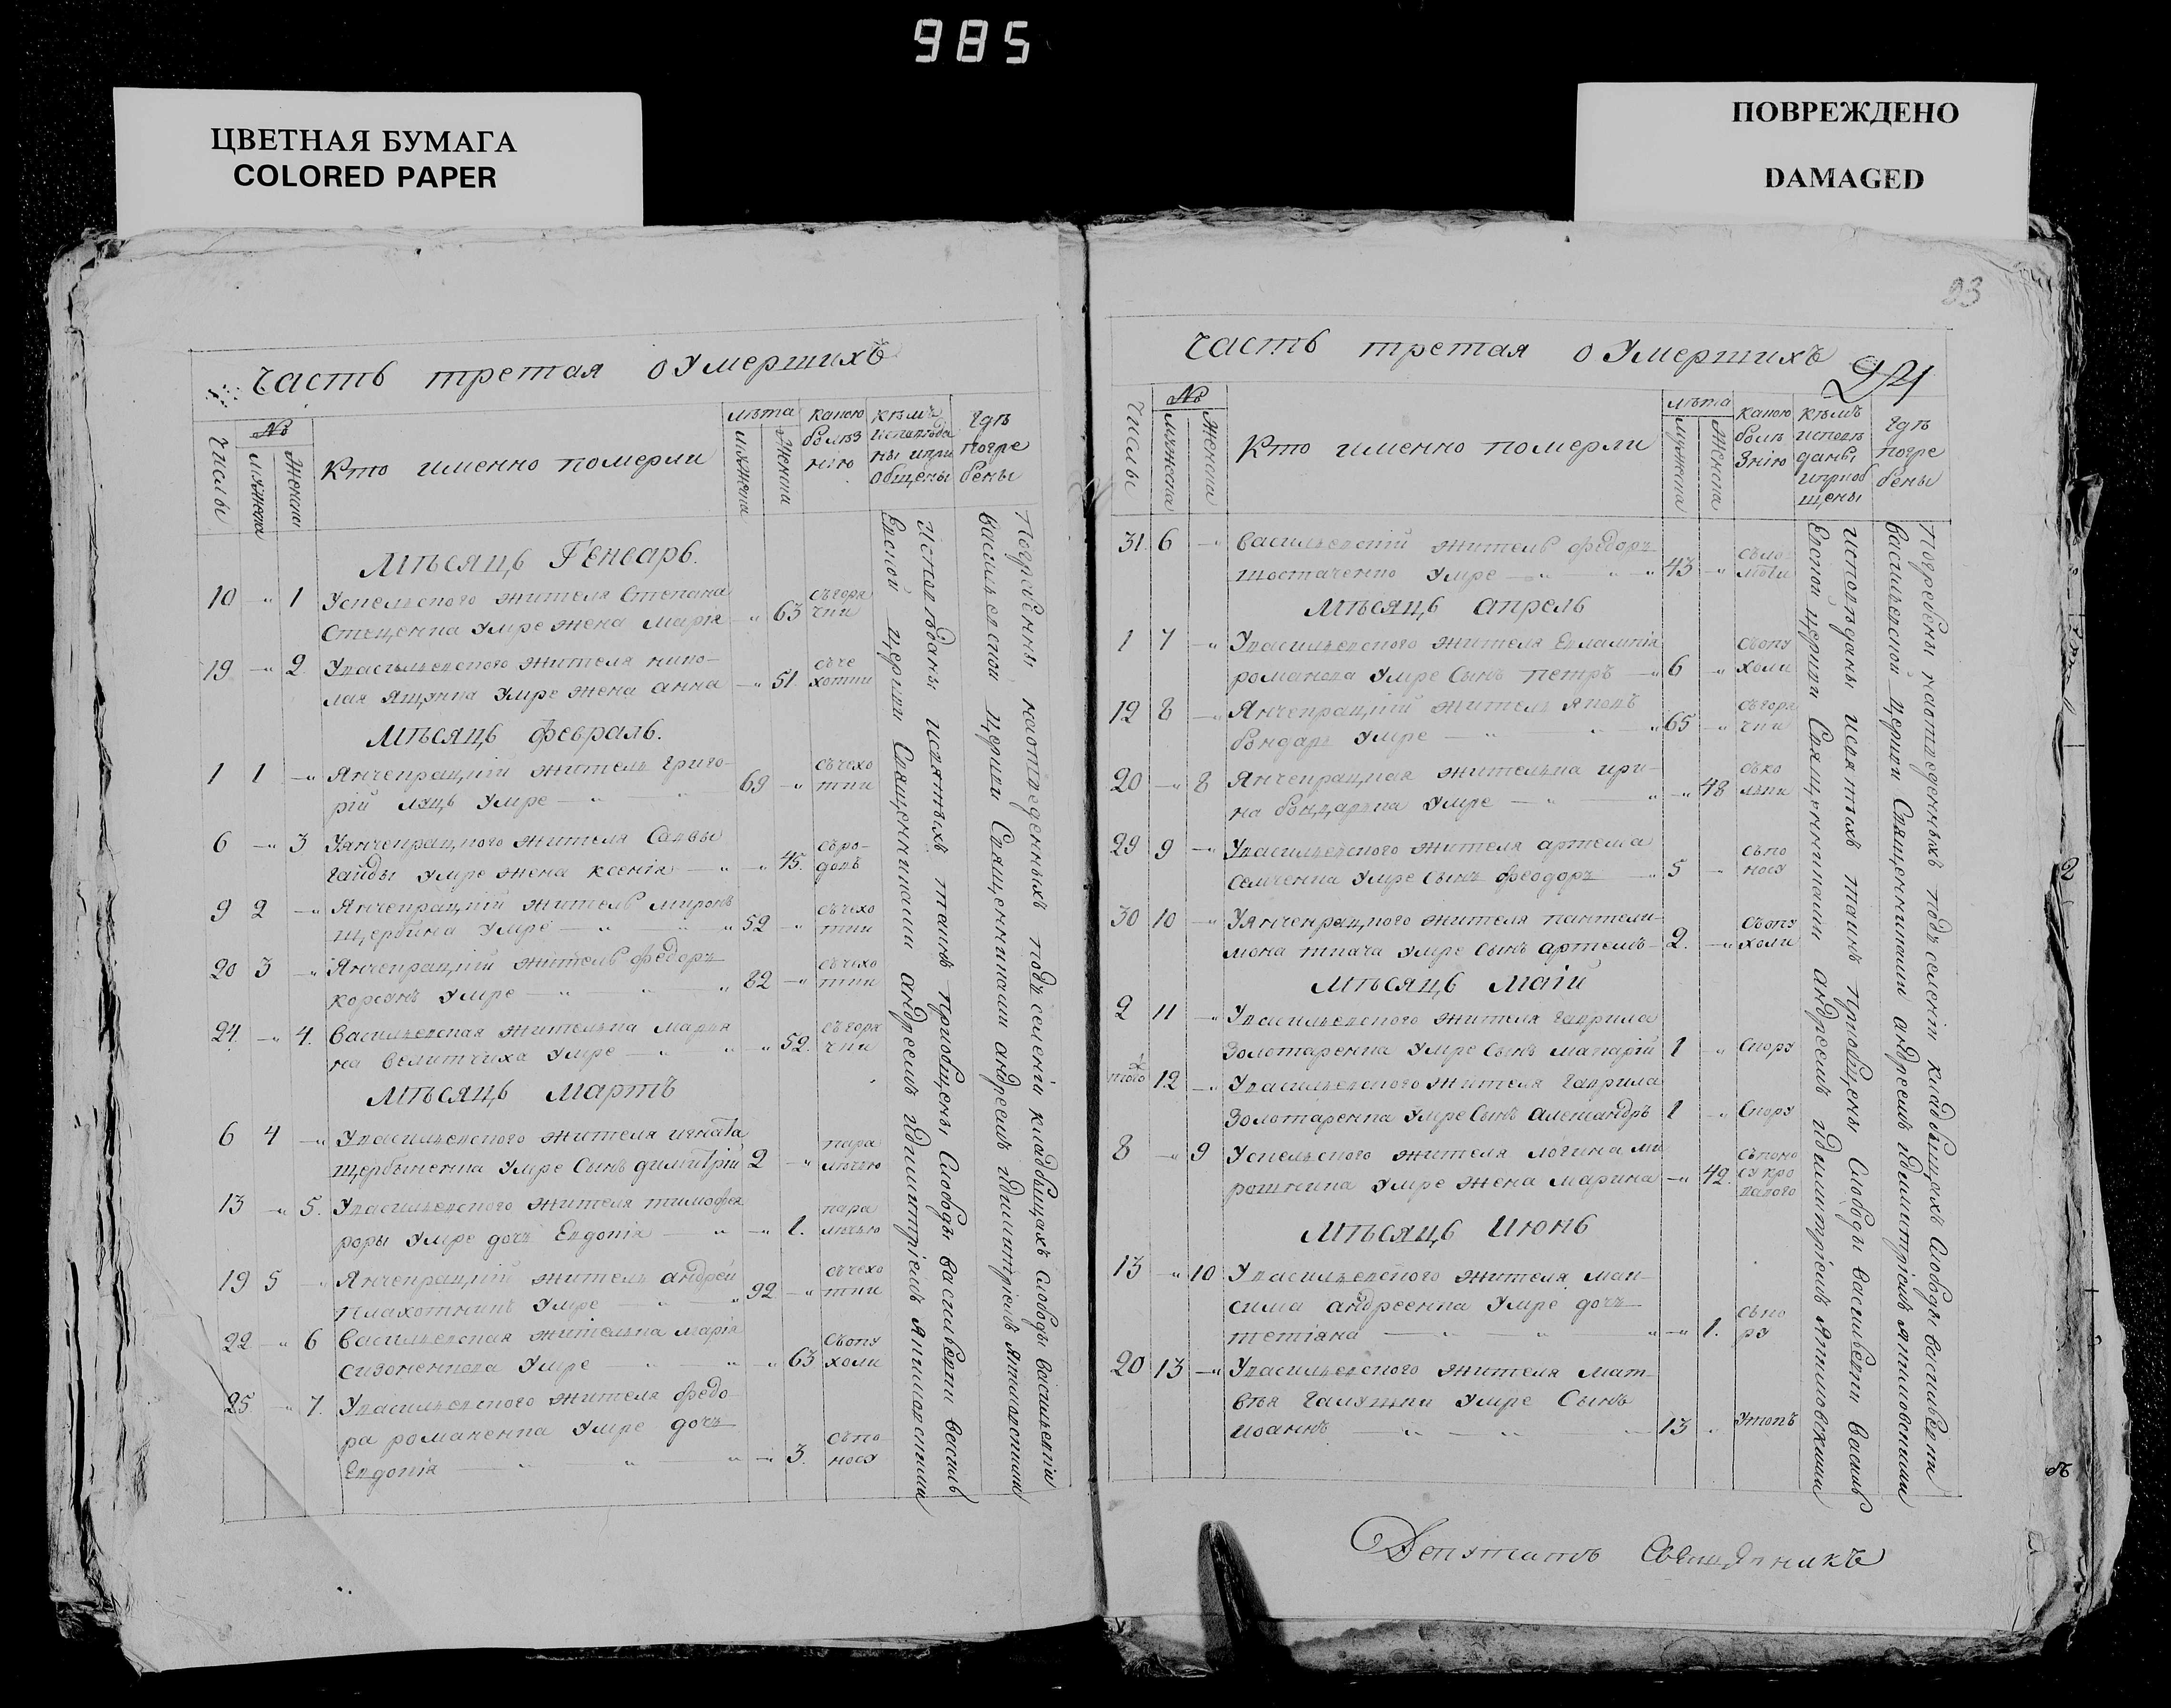 985
ЦВЕТНАЯ БУМАГА
COLORED PAPER
ПОВРЕЖДЕНО
DAMAGED
93
Часть третая о Умершихъ
Числы
№
мужеска
Женска
Кто именно померли
лѣта
мужеска
Женска
какою болѣз нію
кѣмъ исповѣда ны и при общены
гдѣ погре бены
Мѣсяцъ Генварь.
10 -" 1 Успенского жителя Степана
Стеценка Умре жена Марія -" 63 съгоря чки
19 -" 2. Увасильевского жителя нико-
лая Яценка Умре жена анна -" 51. съче хотки
Мѣсяцъ февраль.
1 1 -" Янчекрацкій житель григо-
рій Умре - " - " 69 -" съчехо тки
6 -" 3 Уянчекрацкого жителя Саввы
гайды Умре жена ксенія - " -" 45. съро- довъ
9 2 -" Янчекрацкій житель миронъ
щербина Умре - " " 52 -" съчехо тки
20 3 -" Янчекрацкій житель федоръ
коржъ Умре - " - " 82 -" съчехо тки
24. -" 4. Васильевская жителька
Умре - " " -" 52. съгоря чки
Мѣсяцъ Мартъ
6 4 -" Увасильевского жителя игната
щербыненка Умре Сынъ димитрій 2 -" пара личью
13 -" 5. Увасильевского жителя тимофея
Умре дочь Евдокія - " -" 1. пара личью
19 5 -" Янчекрацкій житель андрей
плахотникъ Умре - " - " 92 -" съчехо тки
22 -" 6 Васильевская жителька марія
Умре - " - " -" 63 съопу холи
25 -" 7. Увасильевского жителя федо-
ра романенка Умре дочь
Евдокія - " - " - " -" 3. съпо носу
Исповѣданы и святыхъ таинъ пріобщены Слободы василевки василь
евской церкви Священникомъ андреемъ димитріемъ
Погребены на отведенныхъ подъ селеніи кладбищахъ Слободы васильевки
васильевской церкви Священникомъ андреемъ димитріемъ
Часть третая о Умершихъ
24
Числы
№
мужеска
Женска
Кто именно померли
лѣта
мужеска
Женска
какою болѣ знію
кѣмъ исповѣ даны и пріоб щены
гдѣ погре бены
31. 6 -" Васильевскій житель федоръ
шостаченко Умре - " - " 43 -"
Мѣсяцъ апрель
1 7 -" Увасильевского жителя Евлампія
романова Умре Сынъ петръ -" 6 -" съопу холи
12 8 -" Янчекрацкій житель яковъ
бондарь Умре - " - " 65 -" съгоря чки
20 -" 8 Янчекрацкая жителька ири-
на Умре - " - " -" 48 съко льки
29 9 -" Увасильевского жителя артема
семченка Умре Сынъ феодоръ -" 5 - съпо носу
30 10 -" Уянчекрацкого жителя пантели-
мона ткача Умре Сынъ артемъ - 2. -" съопу холи
Мѣсяцъ Маій
2 11 -" Увасильевского жителя гаврила
Золотаренка Умре Сынъ макарій 1 -" Скору
того 12 -" Увасильевского жителя гаврила
Золотаренка Умре Сынъ александръ 1 -" Скору
8 -" 9 Успенского жителя логина ми
рошника Умре жена Марина -" 42. съпоно су кро вавого
Мѣсяцъ Июнь
13 -" 10 Увасильевского жителя мак-
сима андреенка Умре дочь
тетіана - " - " " -" 1. съко ру
20 13 -" Увасильевского жителя мат-
вѣя галушки Умре Сынъ
иоаннъ - " - " - 13 . Утопъ
Исповѣданы и святыхъ таинъ пріобщены Слободы василевки василь
евской церкви Священникомъ андреемъ димитріемъ
Погребены на отведенныхъ подъ селеніи кладбищахъ Слободы васильевки
васильевской церкви Священникомъ андреемъ димитріемъ
Депутатъ Священникъ